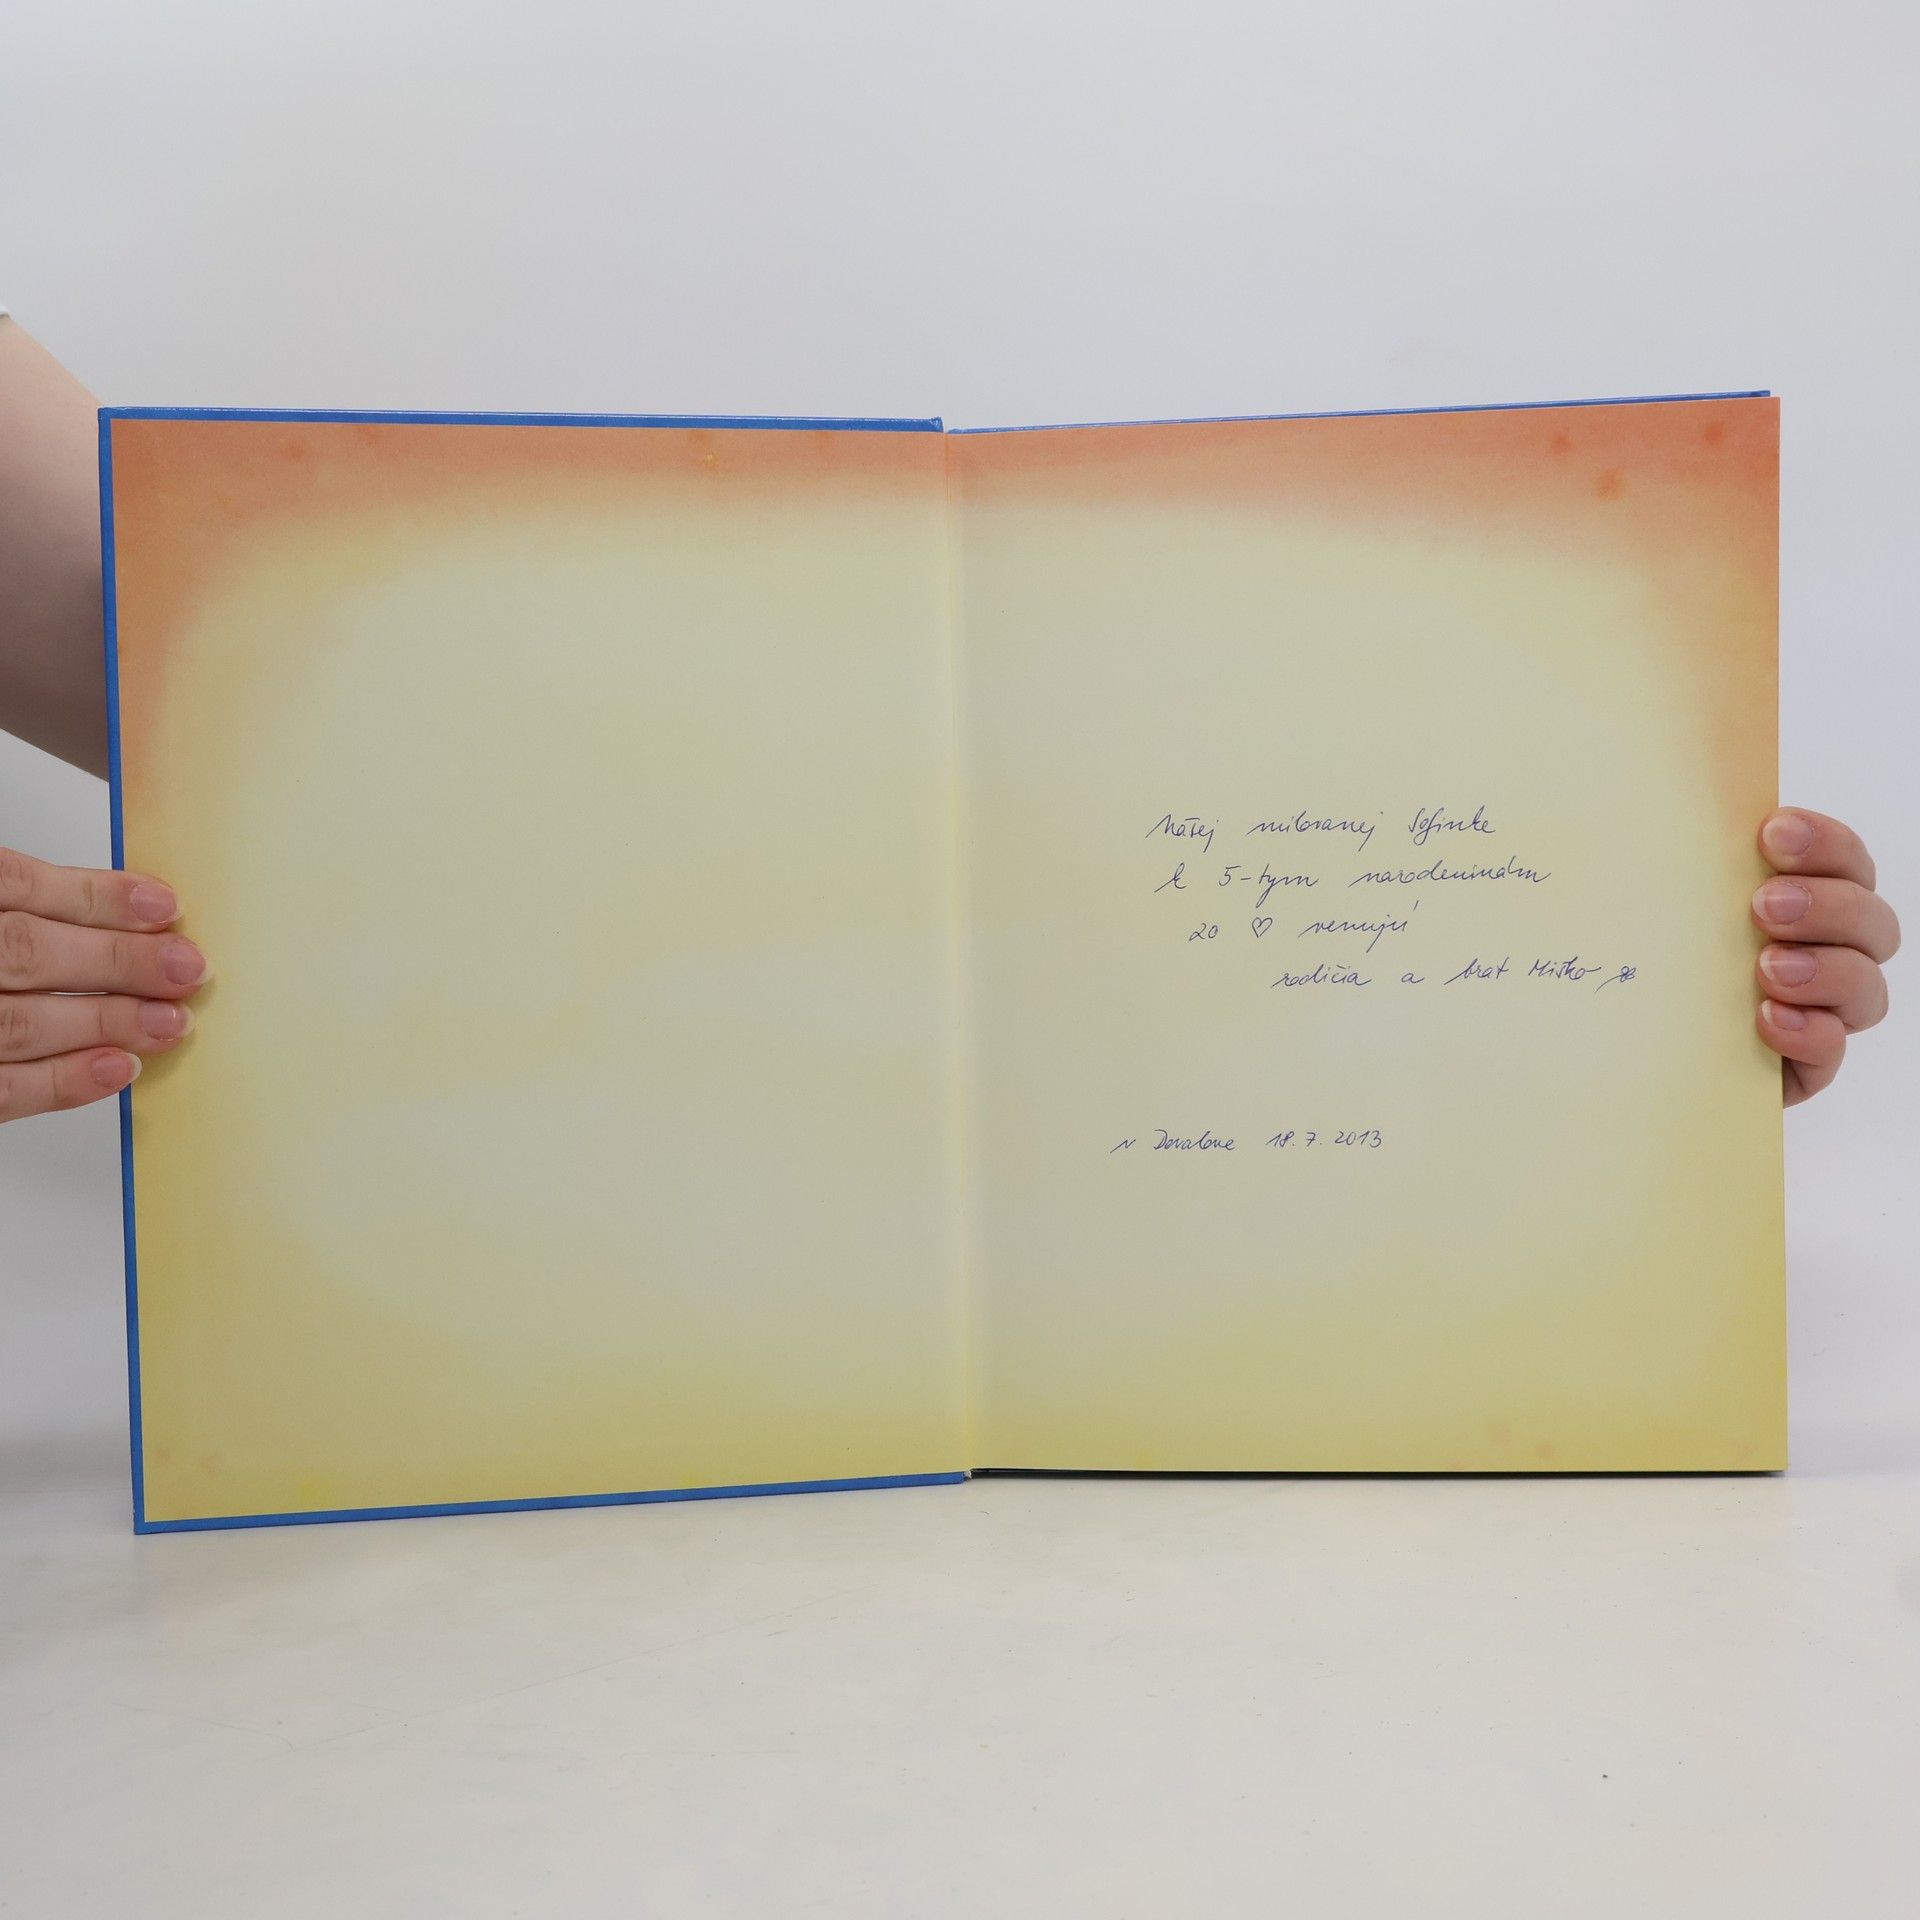 Našej milovanej Sofinke
k 5-tym narodeninám
zo ♡ venujú
rodičia a brat Miško
v Dovalove 18.7.2013